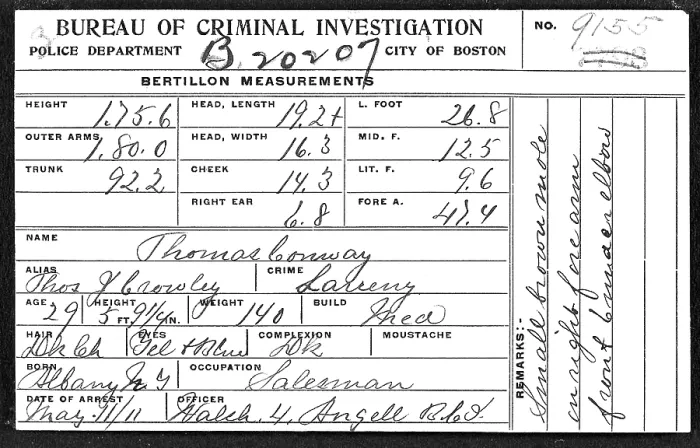 BUREAU OF CRIMINAL INVESTIGATION
POLICE DEPARTMENT CITY OF BOSTON
NO. 9155
B. 20207
BERTILLON MEASUREMENTS
HEIGHT 1.75.6 HEAD, LENGTH 19.2+ L. FOOT 26.8
OUTER ARMS 1.80.0 HEAD, WIDTH 16.3 MID. F. 12.5
TRUNK 92.2 CHEEK 14.3 LIT. F. 9.6
RIGHT EAR 6.8 FORE A. 47.4
NAME Thomas Conway
ALIAS Thos J Crowley CRIME Larceny
AGE 29 HEIGHT 5 FT. 9 1/4 IN. WEIGHT 140 BUILD Med
HAIR Dk Ch EYES Yel + Blue COMPLEXION Dk MOUSTACHE
BORN Albany N Y OCCUPATION Salesman
DATE OF ARREST May 9/11 OFFICER Walsh. 4. Angell
REMARKS:- Small brown mole
on right fore arm
front 6 under elbow